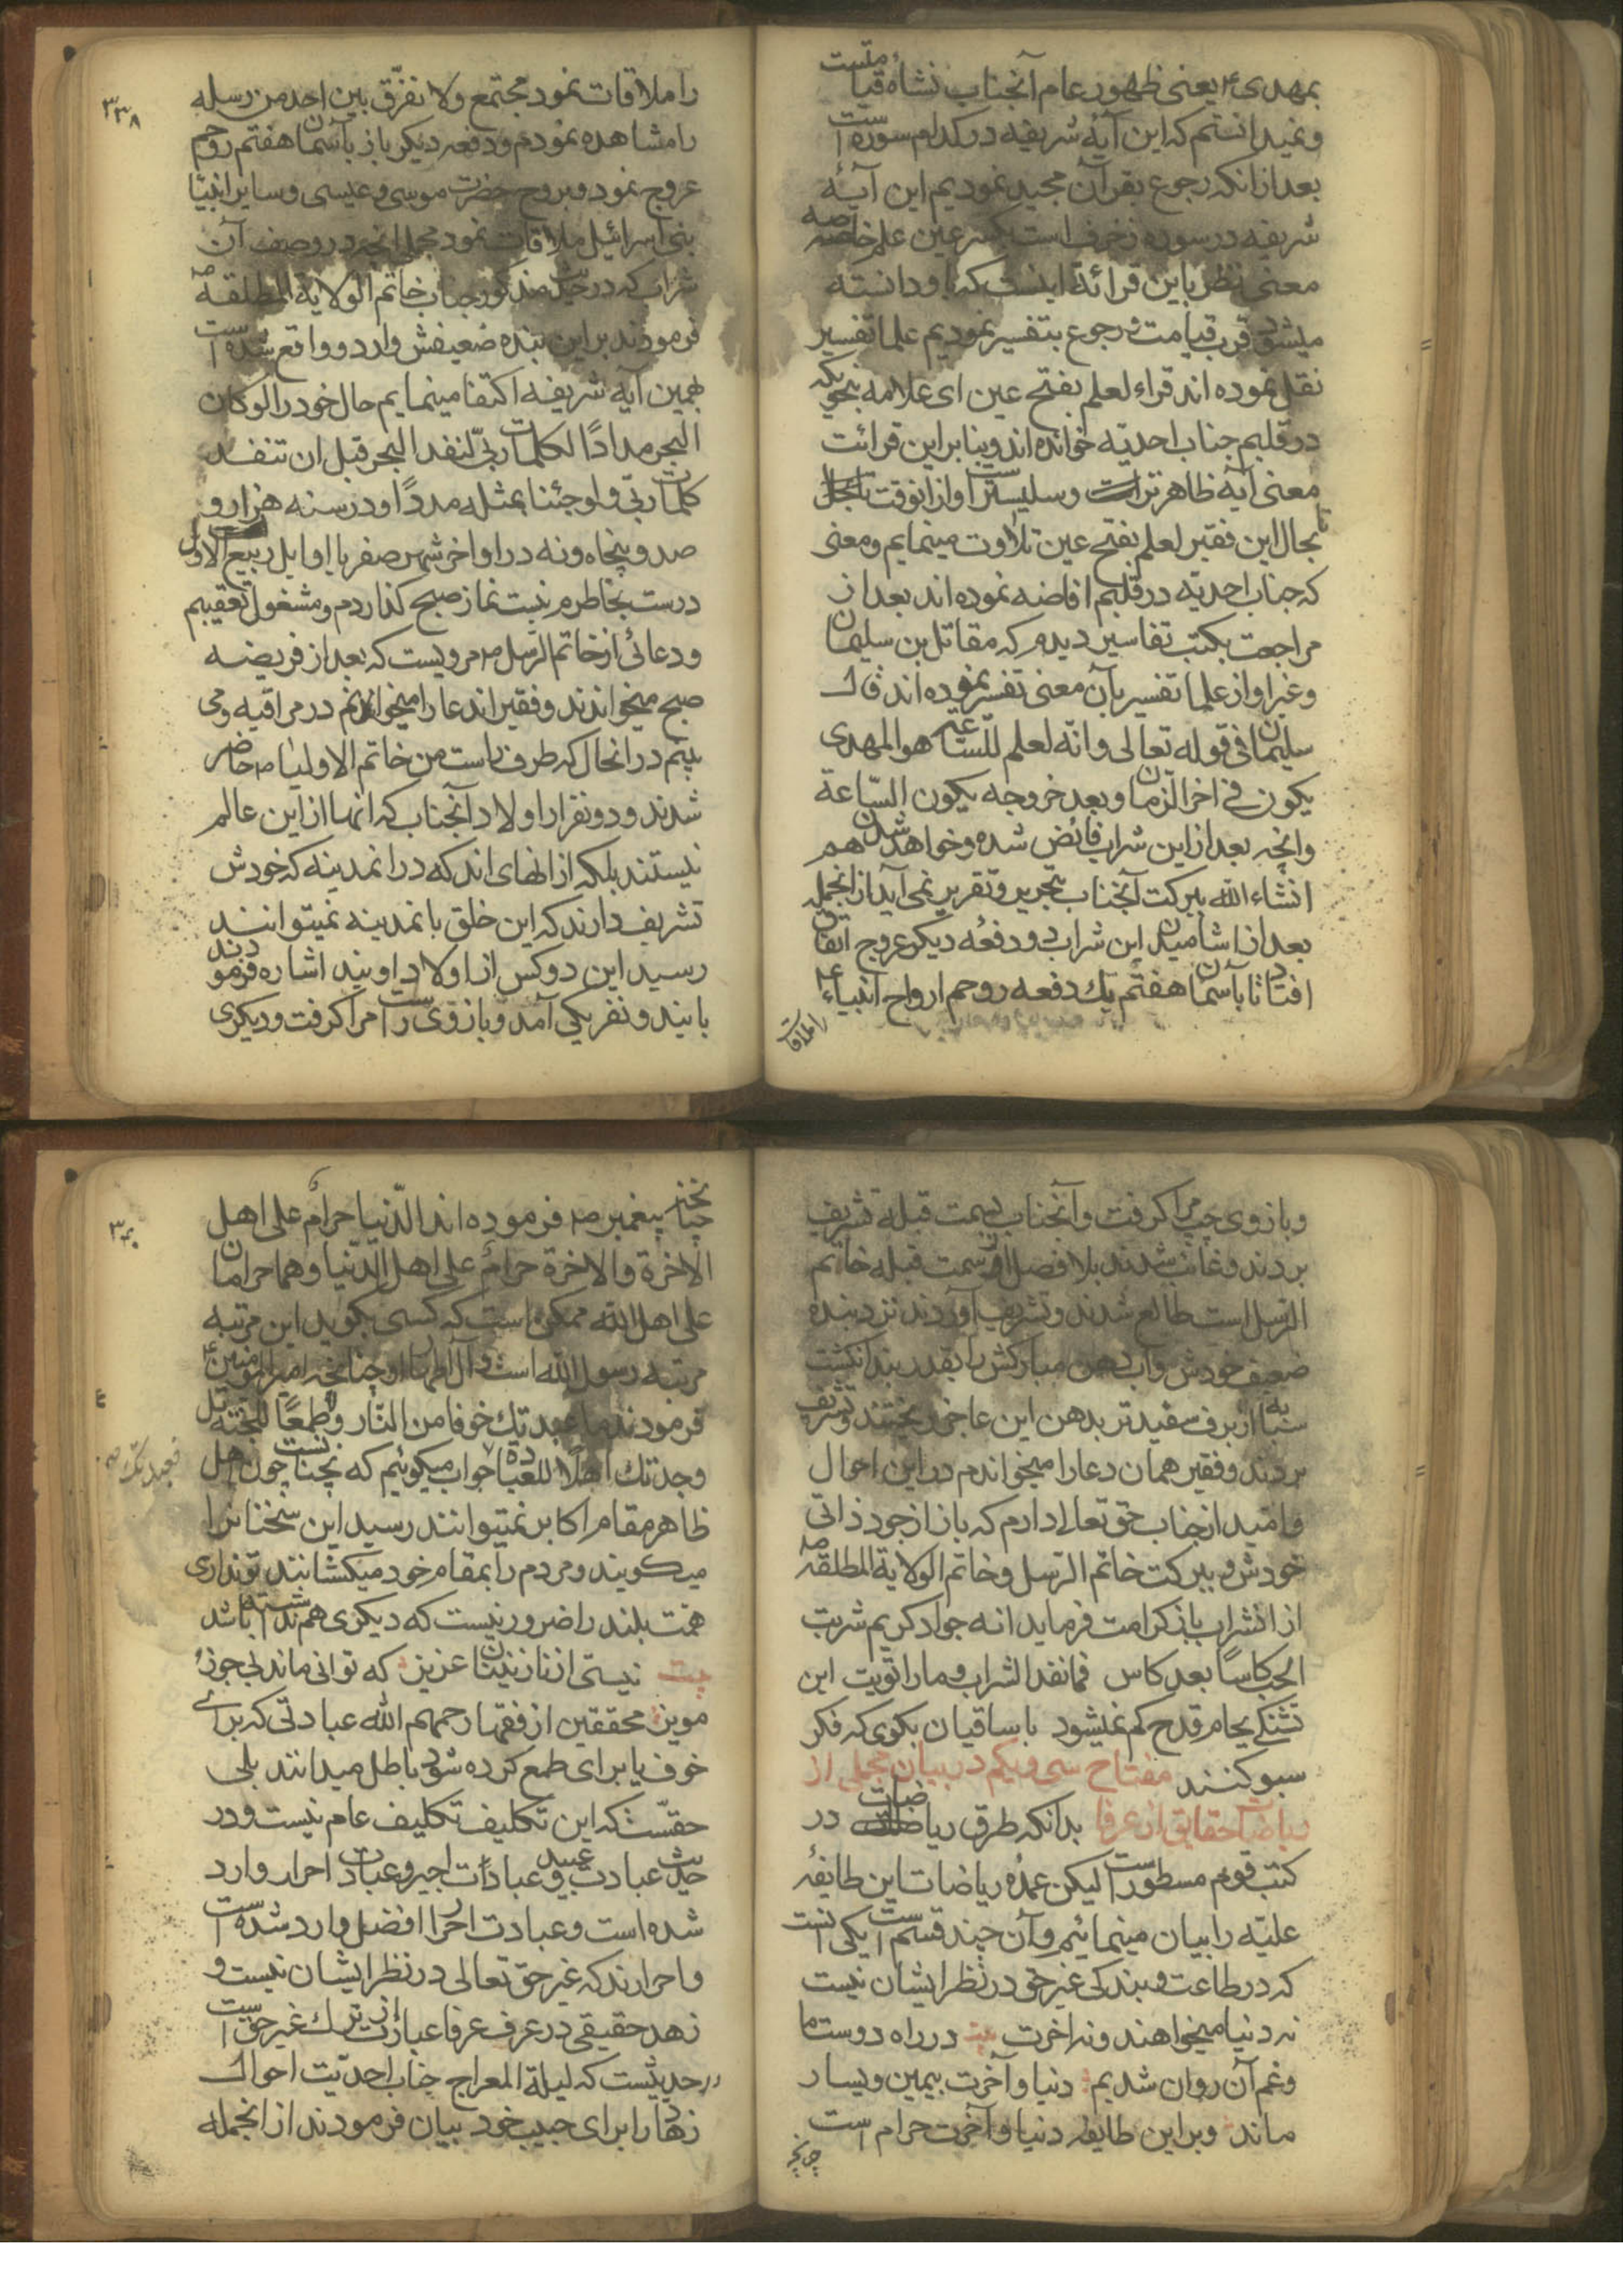 بمهدی ۴ یعنی ظهور عام آنجناب نشاه قیامتست
و نمیدانستم که این آیهٔ شریفه در کدام سوره است
بعد از انکه رجوع بقرآن مجید نمودیم این آیهٔ
شریفه در سوره زخرف است بکسر عین علم خاصه
معنی نظر باین قرائة اینست که باو دانسته
میشود قرب قیامت و رجوع بتفسیر نمودیم علما تفسیر
نقل نموده اند قراء لعلم بفتح عین ای علامه بنحویکه
در قلبم جناب احدیّه خوانده اند و بنا بر این قرائت
معنی آیه ظاهرتر است و سلیستر است و از انوقت تا بحال
بحال این فقیر لعلم بفتح عین تلاوت مینمایم و معنی
که جناب احدیّه در قلبم افاضه نموده اند بعد از
مراجعت بکتب تفاسیر دیدم که مقاتل بن سلیمان
و غیر او از علما تفسیر بآن معنی تفسیر نموده اند قال
سلیمان فی قوله تعالی و انّه لعلم للسّاعة هو المهدی
یکون فی اخر الزمان و بعد خروجه یکون السّاعة
و انچه بعد از این شراب فائض شده و خواهد شدن هم
انشاء الله ببرکت آنجناب بتحریر و تقریر نمی آید از انجمله
بعد از اشامیدن این شراب دو دفعه دیکر عروج اتفاق
افتاد تا بآسمان هفتم یک دفعه روحم ارواح انبیاء ۴
را ملاقات
۳۳۸
را ملاقات نمود مجتمع و لا نفرّق بین احد من رسله
را مشاهده نمودم و دفعه دیکر باز بآسمان هفتم روحم
عروج نمود و بروح حضرت موسی و عیسی و سایر انبیا
بنی اسرائیل ملاقات نمود مجمل انچه در وصف آن
شراب که در حدیث مذکور جناب خاتم الولایة المطلقة ص
فرمودند بر این بنده ضعیفش وارد و واقع شده است
بهمین آیه شریفه اکتفا مینمایم حال خود را لو کان
البحر مدادًا لکلمات ربّی لنفد البحر قبل ان تنفد
کلمات ربّی و لو جئنا بمثله مددًا و در سنه هزار و
صد و پنجاه و نه در اواخر شهر صفر یا اوایل ربیع الاول
درست بخاطرم نیست نماز صبح کذاردم و مشغول تعقیبم
و دعائی از خاتم الرّسل ص مرویست که بعد از فریضه
صبح میخوانند و فقیر اندعا را میخوانم در مراقبه و می
بینم در انحال که طرف راست من خاتم الاولیا ص حاضر
شدند و دو نفر از اولاد آنجناب که انها از این عالم
نیستند بلکه از انهای اند که در انمدینه که خودش
تشریف دارند که این خلق بانمدینه نمیتوانند
رسید این دو کس از اولاد اویند اشاره فرمودند
باندو نفر یکی آمد و بازوی راست مرا کرفت و دیکری
و بازوی چپ مرا کرفت و آنجناب بسمت قبله تشریف
بردند و غائب شدند بلا فصل از سمت قبله خاتم
الرّسل است طالع شدند و تشریف آوردند نزد بنده
ضعیف خودش و آب دهن مبارکش را بقدر بند انکشت
سبابه از برف سفیدتر بدهن این عاجز ریختند و تشریف
بردند و فقیر همان دعا را میخواندم در این احوال
و امّید از جناب حق تعالی دارم که باز از جود ذاتی
خودش و ببرکت خاتم الرّسل و خاتم الولایة المطلقة ص
از انشراب باز کرامت فرماید انه جواد کریم شربت
الحب کاسًا بعد کاس فما نفد الشراب و ما رویت این
تشنکی بجام قدح کم نمیشود با ساقیان بکوی که فکر
سبو کنند مفتاح سی و یکم در بیان مجملی از
ریاضات حقایق از عرفا بدانکه طرق ریاضات در
کتب قوم مسطور است لیکن عمدهٔ ریاضات این طایفهٔ
علیّه را بیان مینمائیم و آن چند قسم است یکی انست
که در طاعت و بندکی غیر حق در نظر ایشان نیست
نه دنیا میخواهند و نه اخرت بیت در راه دوست ما
و غم آن روان شدیم دنیا و آخرت بیمین و یسار
ماند و بر این طایفه دنیا و آخرت حرام است
چنانچه
۳۴۰
چنانچه پیغمبر ص فرموده اند الدّنیا حرامٌ علی اهل
الاخرة والاخرة حرامٌ علی اهل الدّنیا وهما حرامان
علی اهل الله ممکن است که کسی بکوید این مرتبه
مرتبه رسول الله است و آل اطهار او چنانچه امیر المؤمنین ۴
فرمودند ما عبدتک خوفا من النّار ولا طمعًا للجنّة بل
وجدتک اهلًا للعبادة جواب میکوئیم که نچنانست چون اهل
فعبدتک صح
ظاهر مقام اکابر نمیتوانند رسید این سخنانرا
میکویند و مردم را بمقام خود میکشانند تو نداری
همّت بلند را ضرور نیست که دیکری هم نداشته باشد
بیت نیستی از نازنینان عزیز که توانی ماند بی جوز و
مویز محققین از فقها رحمهم الله عبادتی که برای
خوف یا برای طمع کرده شود باطل میدانند بلی
حقسّت که این تکلیف تکلیف عام نیست و در
حدیث عبادت عبید و عبادات اجیر و عبادت احرار وارد
شده است و عبادت احرار افضل وارد شده است
و احرارند که غیر حق تعالی در نظر ایشان نیست و
زهد حقیقی در عرف عرفا عبارت از ترک غیر حق است
در حدیثست که لیلة المعراج جناب احدیّت احوال
زهاد را برای حبیب خود بیان فرمودند از انجمله